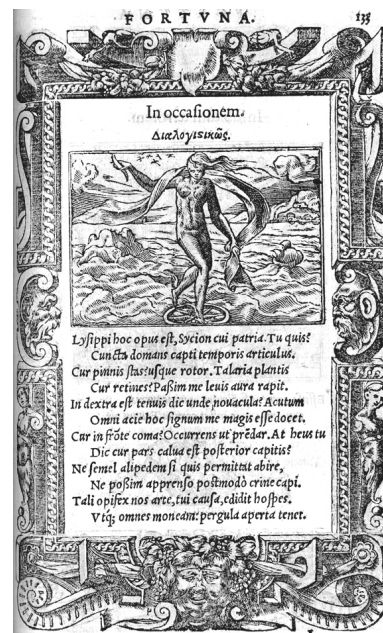 FORTVNA. 133
In occaſionem.
Διαλογιϛικῶς.
Lyſippi hoc opus eſt, Sycion cui patria. Tu quis?
Cuncta domans capti temporis articulus.
Cur pinnis ſtas? uſque rotor. Talaria plantis
Cur retines? Paßim me leuis aura rapit.
In dextra eſt tenuis dic unde nouacula? Acutum
Omni acie hoc ſignum me magis eſſe docet.
Cur in frōte coma? Occurrens ut prēdar. At heus tu
Dic cur pars calua eſt poſterior capitis?
Ne ſemel alipedem ſi quis permittat abire,
Ne poßim apprenſo poſtmodò crine capi.
Tali opifex nos arte, tui cauſa, edidit hoſpes.
Vtq; omnes moneam: pergula aperta tenet.